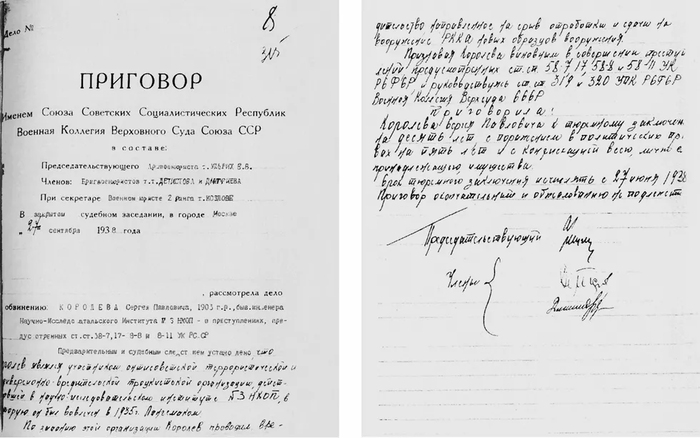 Дело №
8
ПРИГОВОР
Именем Союза Советских Социалистических Республик
Военная Коллегия Верховного Суда Союза ССР
в составе:
Председательствующего Армвоенюриста т. УЛЬРИХ В.В.
Членов: Бригвоенюристов т.т. ДЕТИСТОВА и
При секретаре Военном юристе 2 ранга т. КОЗЛОВЕ
В закрытом судебном заседании, в городе Москве
„27" сентября 1938 года
, рассмотрела дело
обвинению: КОРОЛЕВА Сергея Павловича, 1903 г.р., быв. инженера
Научно-Исследовательского Института № 3 НКОП - в преступлениях, пред-
усмотренных ст.ст. 58-7, 17-58-8 и 58-11 УК РСФСР
Предварительным и судебным следствием установлено, что
ролев являлся участником антисоветской террористической и
диверсионно-вредительской троцкистской организации, дейст-
вовавшей в научно-исследовательском институте №3 НКОП, в
которую он был вовлечен в 1935г. Лангемаком.
По заданию этой организации Королев проводил вре-
дительство направленное на срыв отработки и сдачи на
вооружение РККА новых образцов вооружения.
Признавая Королева виновным в совершении преступ-
лений предусмотренных ст.ст. 58-7, 17-58-8 и 58-11 УК
РСФСР и руководствуясь ст.ст 319 и 320 УПК РСФСР
Военная Коллегия Верхсуда СССР
Приговорила:
Королева Сергея Павловича к тюремному заключению
на десять лет с поражением в политических пра-
вах на пять лет и с конфискацией всего, лично ему
принадлежащего имущества.
Срок тюремного заключения исчислять с 27 июня 1938
Приговор окончательный и обжалованию не подлежит
Председательствующий
Члены